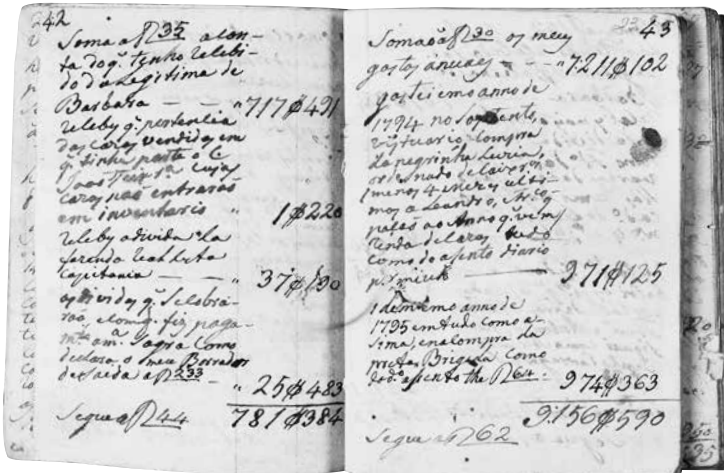 242
Soma af 35 a con-
ta do q. tenho recebi-
do da Legitima de
Barbara — — " 717$491
recebÿ q. pertencia
das cazas vendidas em
q. tinha parte o
cazas não entrarão
em inventario " 1$220
recebÿ a divida
fazenda Real desta
Capitania — — " 37$190
as dividas q. se cobra-
rão, e com q. fiz paga-
m.to a m.ª Sogra como
declara o meu Borrador
de saida af 233 — " 25$483
781$384
Segue af 44
43
Soma af 30 os meus
gastos anuáes — — " 7211$102
gastei em o anno de
1794 no Sustento,
vestuario, compra
da negrinha Luzia,
ordenado de caixeiro,
menos 4 mezes ulti-
mos a Leandro,
ao Anno q. vem,
renda de cazas, tudo
como do asento diario
por miudo — 971$125
Idem em o anno de
1795 em tudo como a-
sima, e na compra da
preta Brigida como
do d.º asento the f 64 . 974$363
9:156$590
Segue af 62